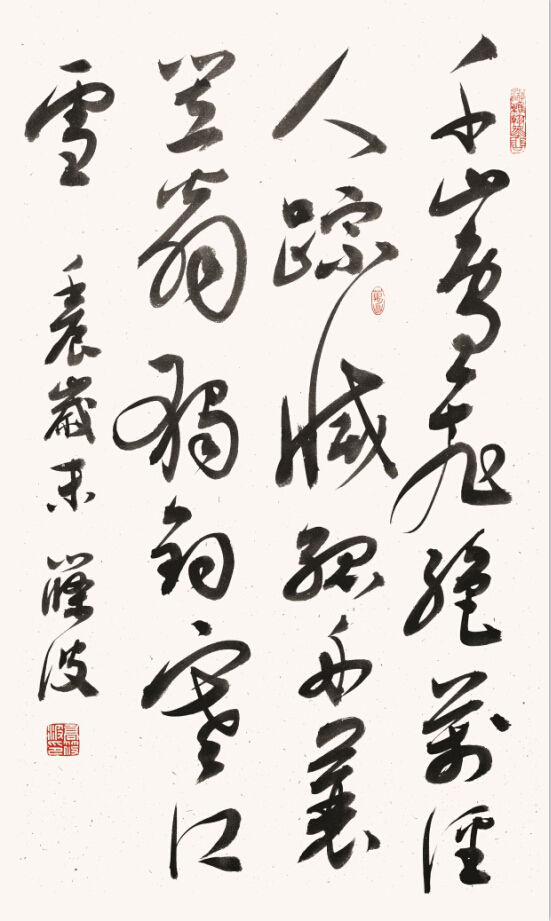 千山鳥飛絶萬徑
人踪滅孤舟蓑
笠翁獨釣寒江
雪
壬辰歲末 波